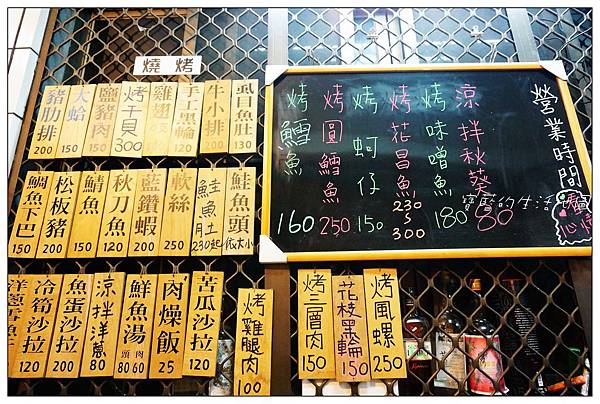 燒烤
豬肋排 200
大蛤 150
鹽豬肉 150
烤干貝 300
雞翅
手工黑輪 120
牛小排 200
虱目魚肚 130
鯛魚下巴 150
松板豬 200
鯖魚 150
秋刀魚 120
藍鑽蝦 200
軟絲 250
鮭魚肚 230起
鮭魚頭 依大小
洋蔥鮪魚
冷筍沙拉 120
魚蛋沙拉 120
涼拌洋蔥 80
鮮魚湯 頭80 肉60
肉燥飯 25
苦瓜沙拉 120
烤雞腿肉 100
烤三層肉 150
花枝黑輪 150
烤風螺 250
烤鱈魚 160
烤圓鱈魚 250
烤蚵仔 150
烤花昌魚 230~300
烤味噌魚 180
涼拌秋葵 80
營業時間
寶藍的生活